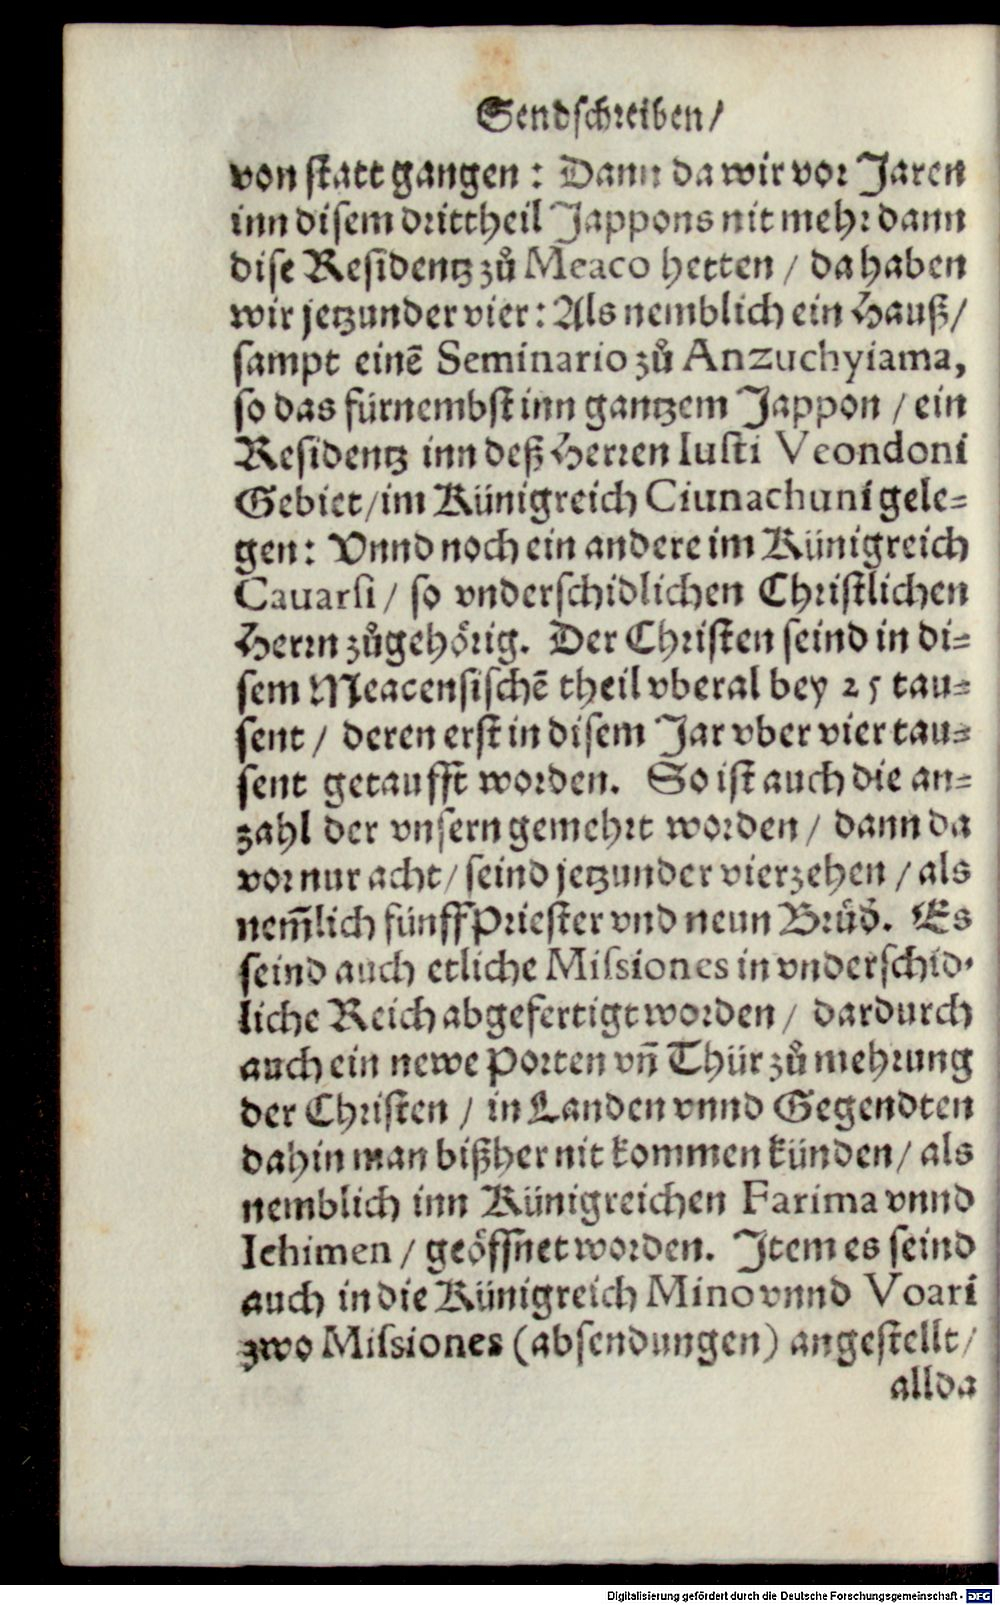 Sendschreiben/
von statt gangen: Dann da wir vor Jaren
inn disem drittheil Jappons nit mehr dann
dise Residentz zů Meaco hetten / da haben
wir jetzunder vier: Als nemblich ein Hauß/
sampt einē Seminario zů Anzuchyiama,
so das fürnembst inn gantzem Jappon / ein
Residentz inn deß Herren Iusti Veondoni
Gebiet/im Künigreich Ciunachuni gele=
gen: Vnnd noch ein andere im Künigreich
Cauarsi / so vnderschidlichen Christlichen
Herrn zůgehörig. Der Christen seind in di=
sem Meacensischē theil vberal bey 25 tau=
sent / deren erst in disem Jar vber vier tau=
sent getaufft worden. So ist auch die an=
zahl der vnsern gemehrt worden / dann da
vor nur acht/ seind jetzunder vierzehen / als
nem̄lich fünff Priester vnd neun Brüd̄. Es
seind auch etliche Missiones in vnderschid=
liche Reich abgefertigt worden / dardurch
auch ein newe Porten vn̄ Thür zů mehrung
der Christen / in Landen vnnd Gegendten
dahin man bißher nit kommen künden/ als
nemblich inn Künigreichen Farima vnnd
Ichimen / geöffnet worden. Item es seind
auch in die Künigreich Mino vnnd Voari
zwo Missiones (absendungen) angestellt/
allda
Digitalisierung gefördert durch die Deutsche Forschungsgemeinschaft - DFG